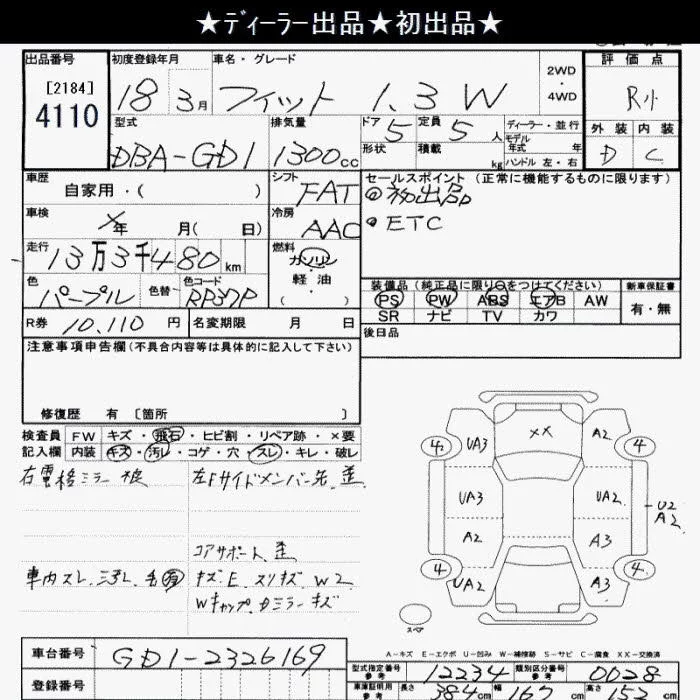 ★ディーラー出品★初出品★
出品番号 初度登録年月 車名・グレード 2WD・4WD 評価点
[2184] 4110 18 3月 フィット 1.3 W R小
型式 排気量 ドア 5 定員 5人 ディーラー・並行 外装 内装
DBA-GD1 1300cc 形状 積載 kg モデル年式 年 ハンドル 左・右 D C
車歴 シフト セールスポイント (正常に機能するものに限ります)
自家用・( ) FAT 初出品
車検 冷房 ETC
×年 月( 日) AAC
走行 燃料
13万3千480km ガソリン
色 色替 色コード 軽油
パープル RP37P ( )
装備品(純正品に限り○をつけてください) 新車保証書
PS PW ABS エアB AW 有・無
SR ナビ TV カワ
R券 10,110円 名変期限 月 日
後日品
注意事項申告欄(不具合内容等は具体的に記入して下さい)
修復歴 有 〔箇所 〕
検査員 FW キズ・飛石・ヒビ割・リペア跡・×要
記入欄 内装 キズ・汚レ・コゲ・穴・スレ・キレ・破レ
右電格ミラー 左Fサイドメンバー先 歪
コアサポート 歪
車内スレ キズ、E、スリキズ W2
Wキャップ ミラーキズ
XX
UA3 A2
4 4
UA3 UA2 U2
A2
A2 A3
4 4
UA2 A3
スペア
A-キズ E-エクボ U-凹み W-補修跡 S-サビ C-腐食 XX-交換済
車台番号 GD1-2326169
型式指定番号 参考 12234 類別区分番号 参考 0028
登録番号
車庫証明用 参考 長さ 384cm 幅 167cm 高さ 152cm